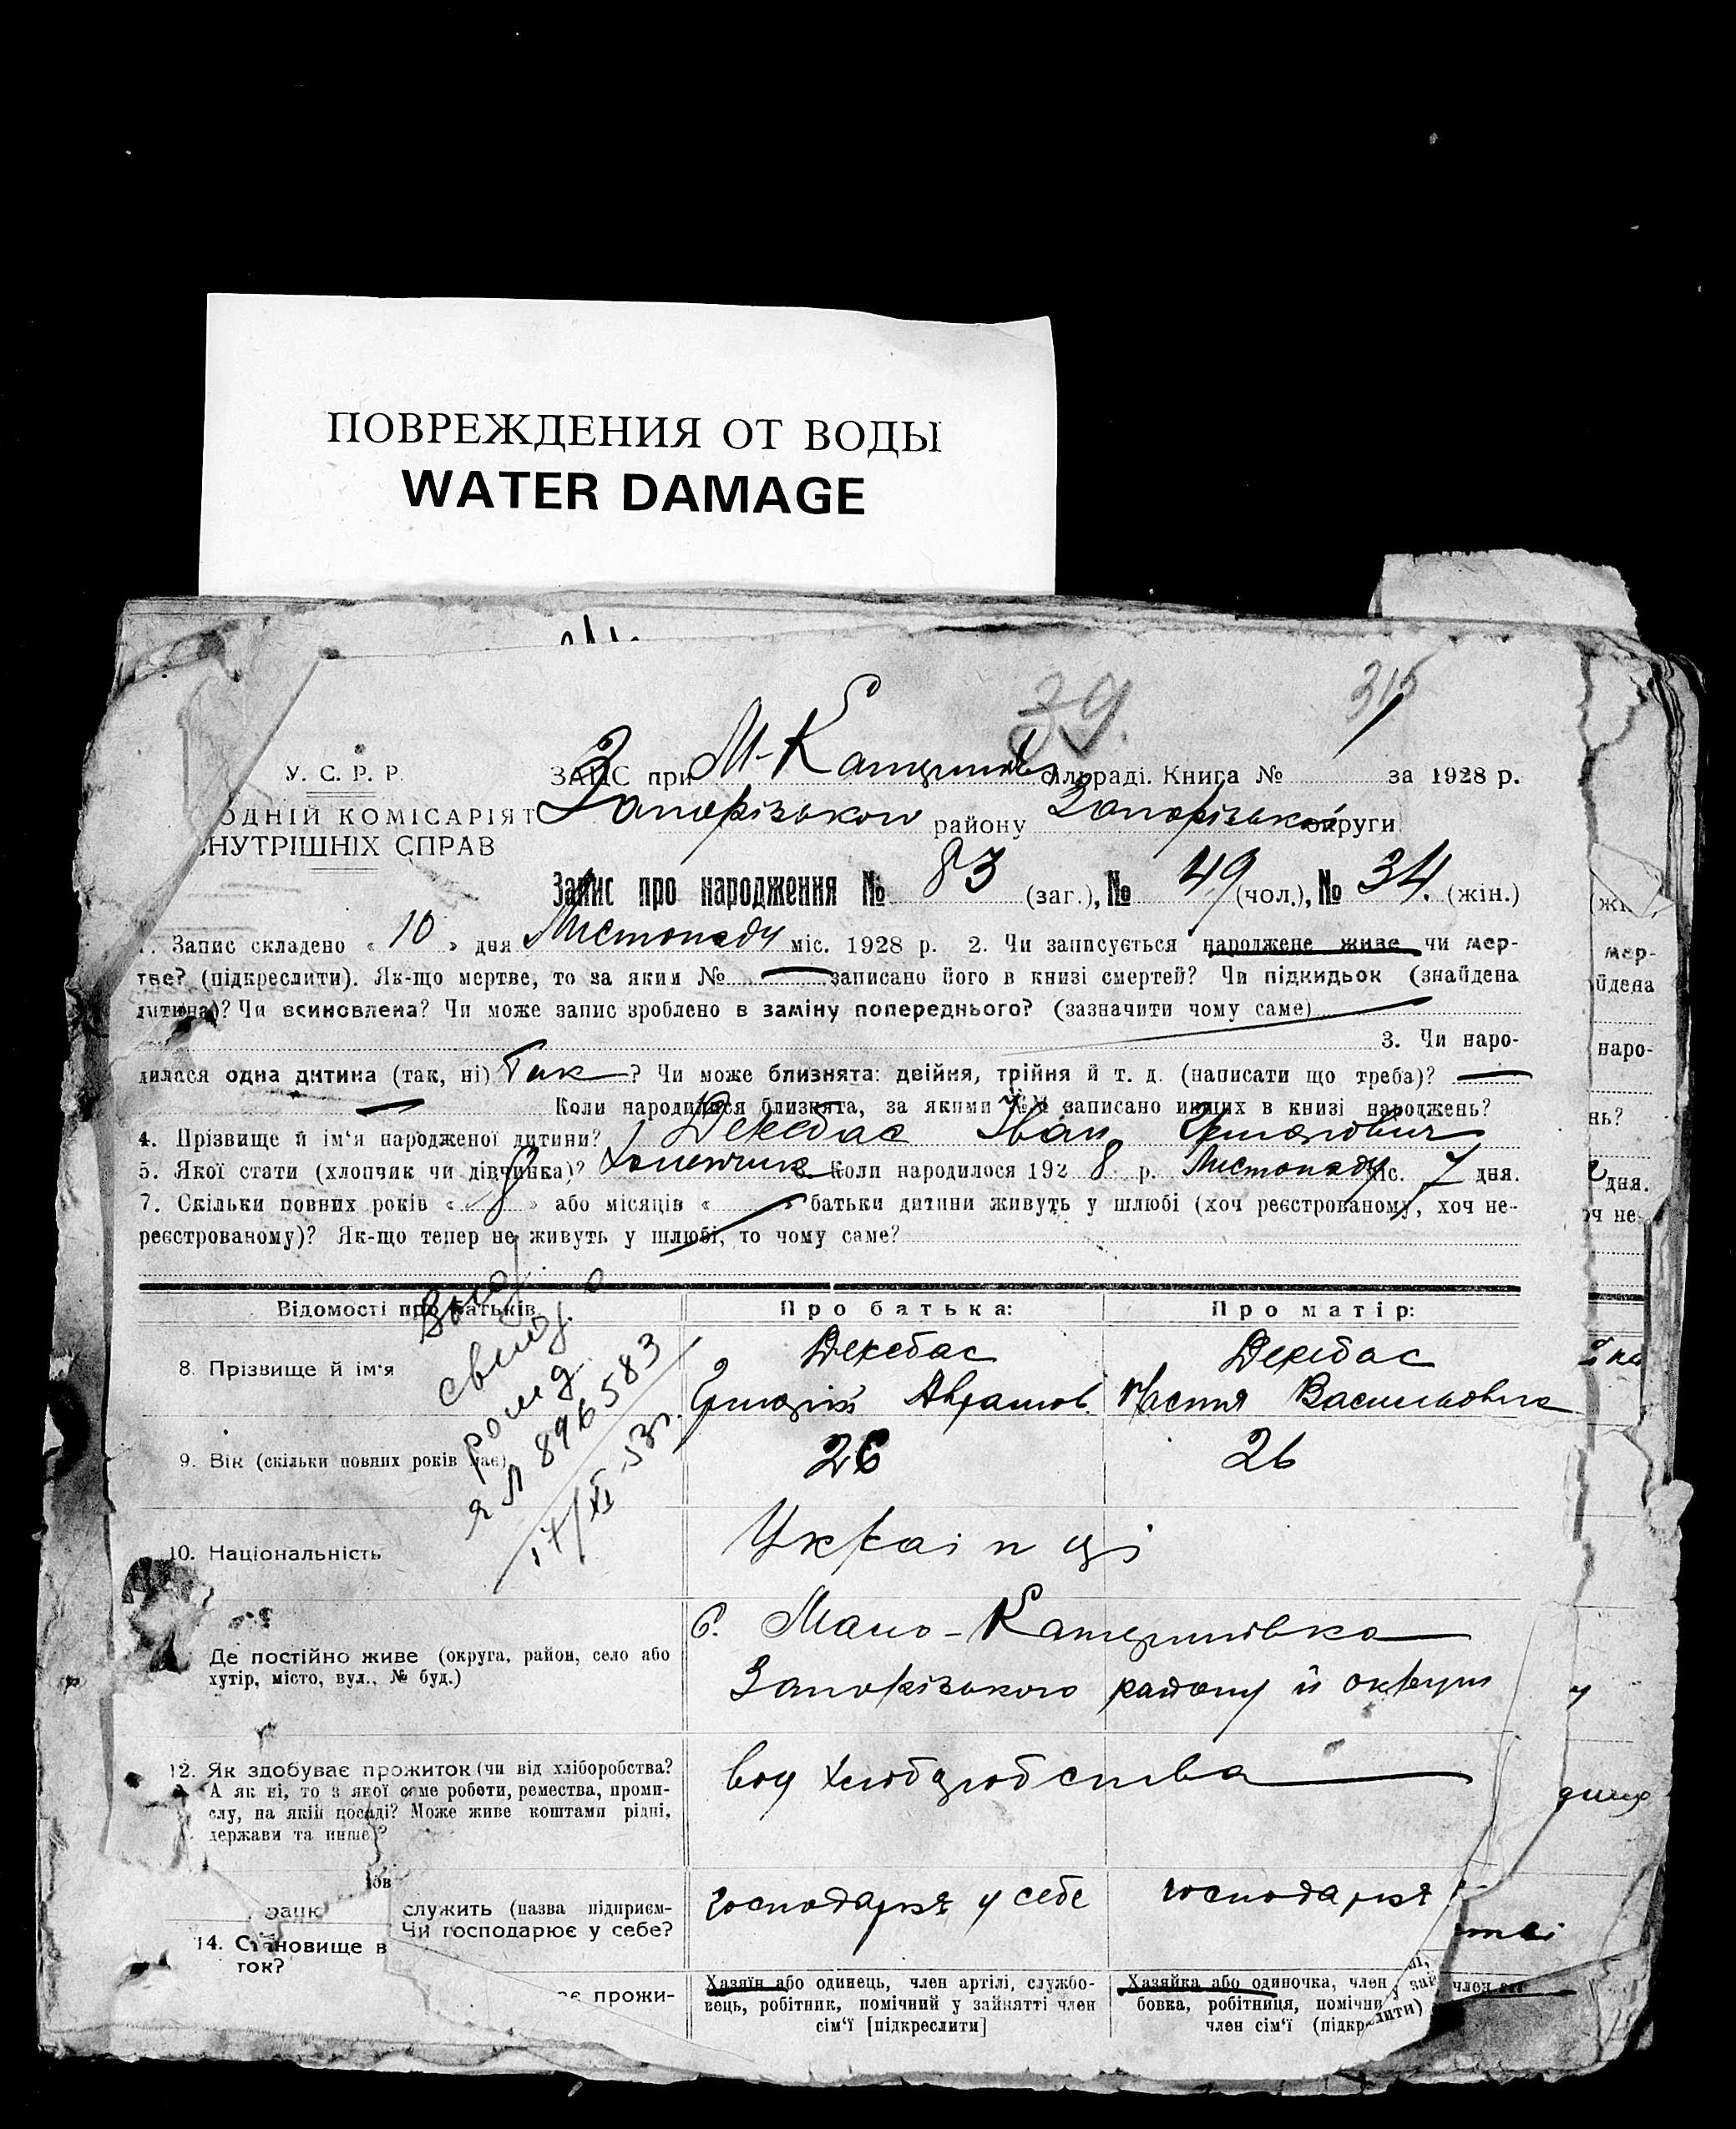 ПОВРЕЖДЕНИЯ ОТ ВОДЫ
WATER DAMAGE
39. 315
У. С. Р. Р.
ЗАПС при М-Катеринів сільраді. Книга № за 1928 р.
ОДНІЙ КОМІСАРІЯТ
Запорізького району Запорізької округи
НУТРІШНІХ СПРАВ
Запис про народження № 83 (заг.), № 49 (чол.), № 34. (жін.)
1. Запис складено « 10 » дня Листопаду міс. 1928 р. 2. Чи записується народжене живе чи мер-
тве? (підкреслити). Як-що мертве, то за яким № — записано його в книзі смертей? Чи підкидьок (знайдена
дитина)? Чи всиновлена? Чи може запис зроблено в заміну попереднього? (зазначити чому саме)
3. Чи наро-
дилася одна дитина (так, ні) Так ? Чи може близнята: двійня, трійня й т. д. (написати що треба)? —
— Коли народилися близнята, за якими №№ записано инших в книзі народжень?
4. Прізвище й ім'я народженої дитини? Іван
5. Якої стати (хлопчик чи дівчинка)? Хлопчик Коли народилося 192 8 р. Листопаду міс. 7 дня.
7. Скільки повних років « 8 » або місяців « » батьки дитини живуть у шлюбі (хоч реєстрованому, хоч не-
реєстрованому)? Як-що тепер не живуть у шлюбі, то чому саме?
Відомості про батьків Про батька: Про матір:
8. Прізвище й ім'я
Настя Василовна
9. Вік (скільки повних років має) 26 26
свид. о
рожд.
ЯЛ 896583
17/XI-53г.
10. Національність Українці
Де постійно живе (округа, район, село або
хутір, місто, вул., № буд.)
с. Мало-Катеринівка
Запорізького району й округи
12. Як здобуває прожиток (чи від хліборобства?
А як ні, то з якої саме роботи, ремества, проми-
слу, на якій посаді? Може живе коштами рідні,
держави та инше)?
від хліборобства
служить (назва підприєм-
Чи господарює у себе?
господарює у себе господарює
14. Становище в
ток?
є прожи-
Хазяїн або одинець, член артілі, службо-
вець, робітник, помічний у зайнятті член
сім'ї [підкреслити]
Хазяйка або одиночка, член
бовка, робітниця, помічни
член сім'ї (підкр
мер-
йдена
наро-
нь?
дня.
оч не-